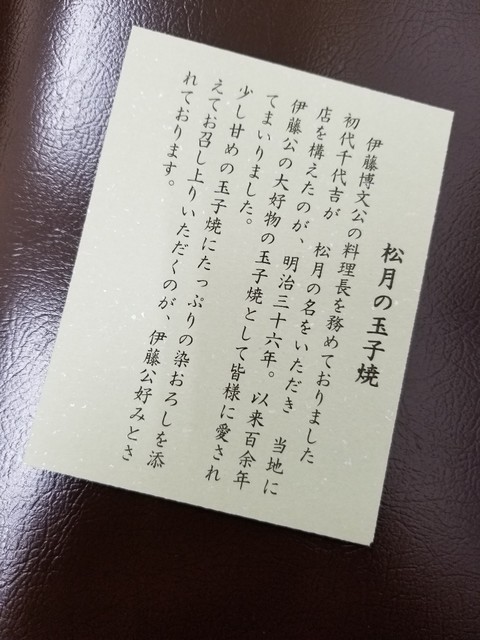 松月の玉子焼
伊藤博文公の料理長を務めておりました
初代千代吉が、松月の名をいただき 当地に
店を構えたのが、明治三十六年。以来百余年
伊藤公の大好物の玉子焼として皆様に愛され
てまいりました。
少し甘めの玉子焼にたっぷりの染おろしを添
えてお召し上りいただくのが、伊藤公好みとさ
れております。